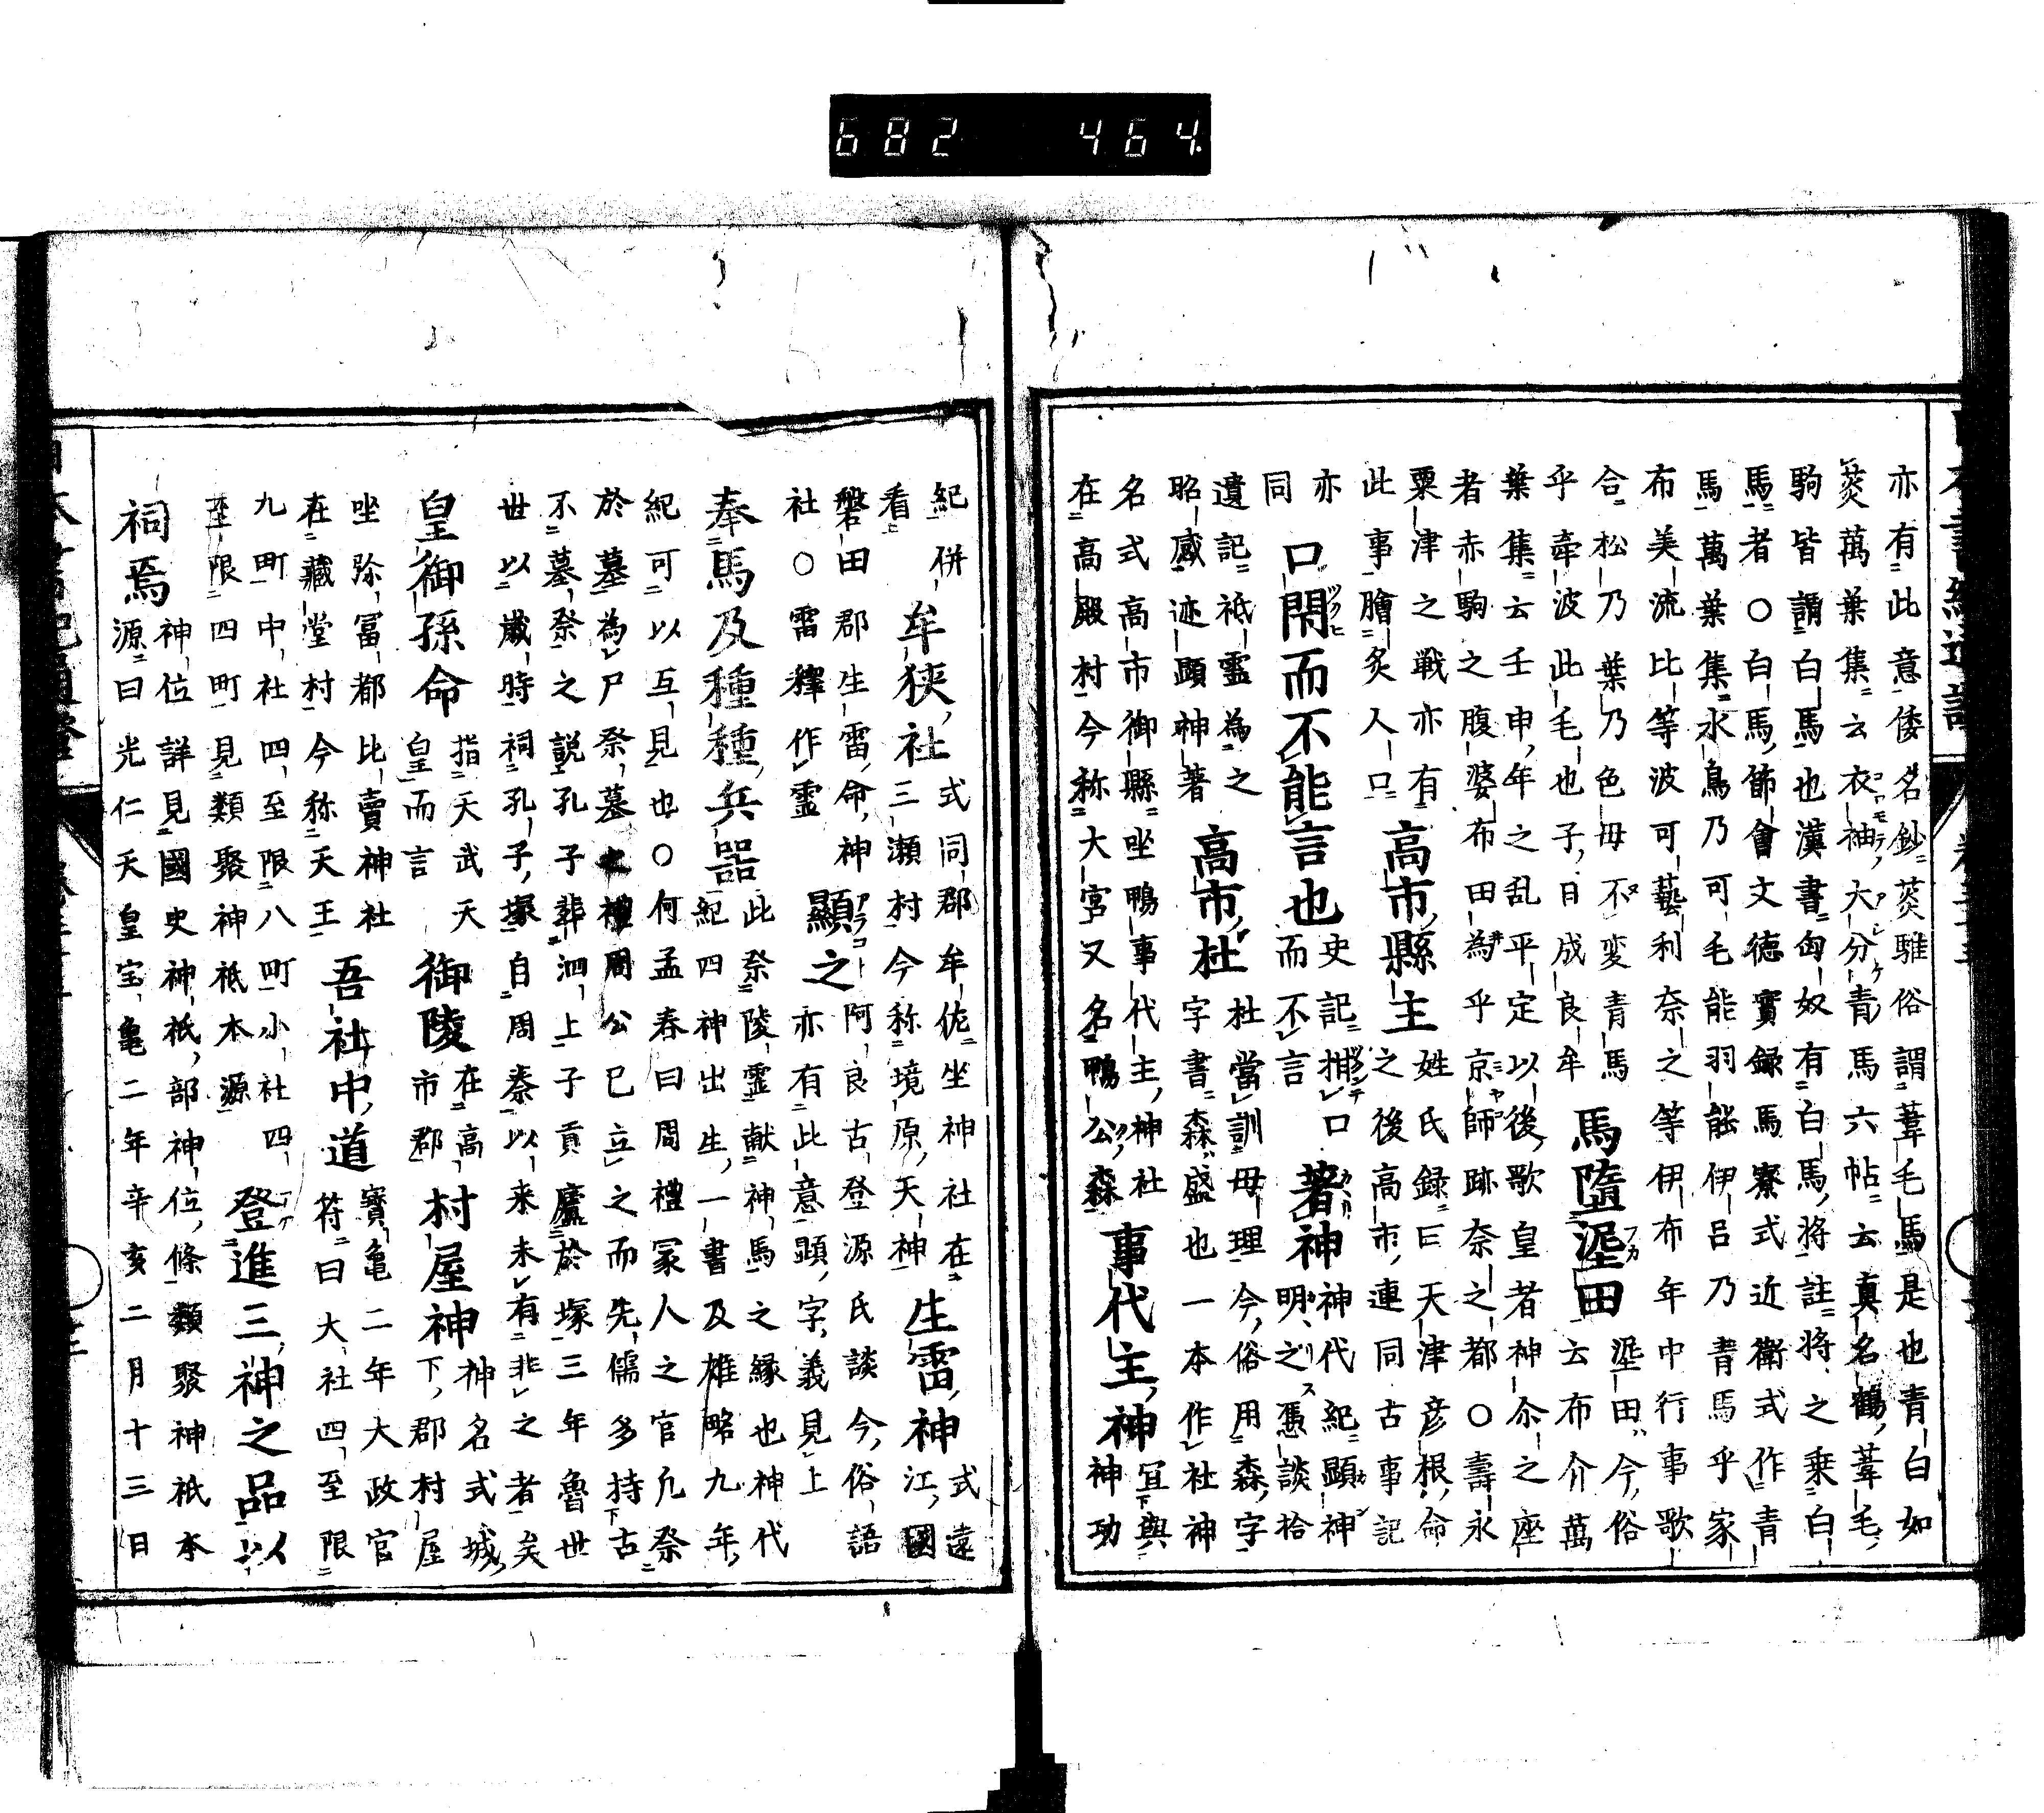 亦有此意倭名鈔菼騅俗謂葦毛馬是也青白如
菼萬葉集云衣袖大分青馬六帖云真名鶴葦毛
駒皆謂白馬也漢書匈奴有白馬将註将之乗白
馬者○白馬節會文徳實録馬寮式近衛式作青
馬萬葉集水鳥乃可毛能羽能伊呂乃青馬乎家
布美流比等波可藝利奈之等伊布年中行事歌
合松乃葉乃色毋不変青馬
乎牽波此毛也子日成良牟
馬墮埿田
埿田今俗
云布介萬
葉集云壬申年之乱平定以後歌皇者神尓之座
者赤駒之腹婆布田為乎京師跡奈之都○壽永
粟津之戦亦有
此事膾炙人口
高市縣主
姓氏録曰天津彦根命
之後高市連同古事記
亦
同
口閇而不能言也
史記拑口
而不言
著神
神代紀顕神
明之憑談拾
遺記祗靈為之
昭威迹顕神著
高市杜
杜當訓毋理今俗用森字
字書森盛也一本作社神
名式高市御縣坐鴨事代主神社
在高殿村今称大宮又名鴨公森
事代主神
冝與
神功
紀併
看
牟狭社
式同郡牟佐坐神社在
三瀬村今称境原天神
生雷神
式遠
江國
磐田郡生雷命神
社○雷釋作靈
顯之
阿良古登源氏談今俗語
亦有此意顕字義見上
奉馬及種種兵器
此祭陵靈献神馬之縁也神代
紀四神出生一書及雄略九年
紀可以互見也○何孟春曰周禮冢人之官凢祭
於墓為尸祭墓之禮周公已立之而先儒多持古
不墓祭之説孔子葬泗上子貢廬於塚三年魯世
世以歳時祠孔子塚自周秦以来未有非之者矣
皇御孫命
指天武天
皇而言
御陵
在高
市郡
村屋神
神名式城
下郡村屋
坐弥冨都比賣神社
在藏堂村今称天王
吾社中道
寳亀二年大政官
符曰大社四至限
九町中社四至限八町小社四
至限四町見類聚神祇本源
登進三神之品以
祠焉
神位詳見國史神祇部神位條類聚神祇本
源曰光仁天皇宝亀二年辛亥二月十三日
682 464